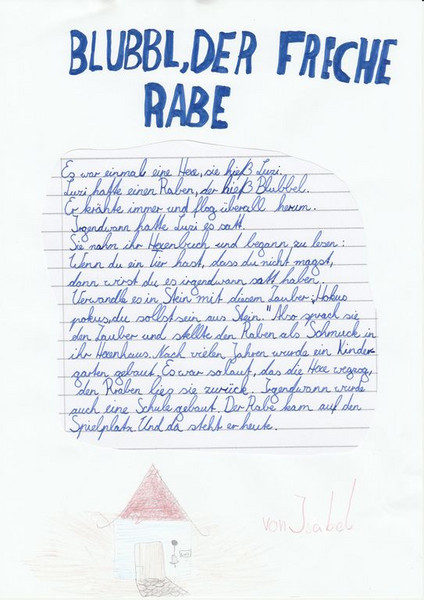 BLUBBL, DER FRECHE
RABE
Es war einmal eine Hexe, sie hieß Luzi.
Luzi hatte einen Raben, der hieß Blubbel.
Er krähte immer und flog überall herum.
Irgendwann hatte Luzi es satt.
Sie nahm ihr Hexenbuch und begann zu lesen:
Wenn du ein tier hast, dass du nicht magst,
dann wirst du es irgendwann satt haben.
Verwandle es in Stein mit diesem Zauber: „Hokus
pokus, du sollst sein aus Stein." Also sprach sie
den Zauber und stellte den Raben als Schmuck in
ihr Hexenhaus. Nach vielen Jahren wurde ein Kinder-
garten gebaut. Es war so laut, das die Hexe wegzog,
den Raben ließ sie zurück. Irgendwann wurde
auch eine Schule gebaut. Der Rabe kam auf den
Spielplatz. Und da steht er heute.
von Isabel